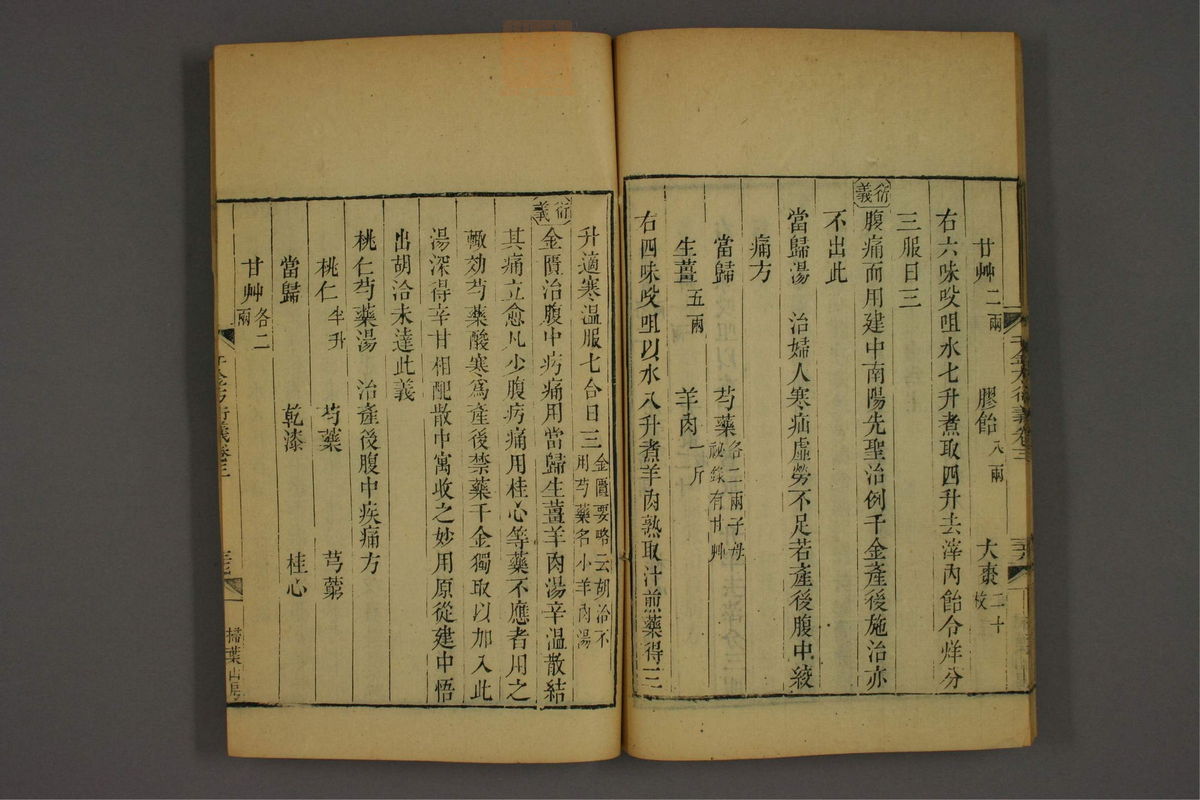 甘艸二兩 膠飴八兩 大棗二十枚
右六味㕮咀水七升煮取四升去滓內飴令烊分
三服日三
衍義
腹痛而用建中南陽先聖治例千金產後施治亦
不出此
當歸湯 治婦人寒疝虛勞不足若產後腹中絞
痛方
當歸 芍藥各二兩子母祕錄有甘艸
生薑五兩 羊肉一斤
右四味㕮咀以水八升煮羊肉熟取汁煎藥得三
升適寒溫服七合日三金匱要略云胡洽不用芍藥名小羊肉湯
衍義
金匱治腹中㽲痛用當歸生薑羊肉湯辛溫散結
其痛立愈凡少腹㽲痛用桂心等藥不應者用之
輙効芍藥酸寒爲產後禁藥千金獨取以加入此
湯深得辛甘相配散中寓收之妙用原從建中悟
出胡洽未達此義
桃仁芍藥湯 治產後腹中疾痛方
桃仁半升 芍藥 芎藭
當歸 乾漆 桂心
甘艸各二兩
千金方衍義卷三
掃葉山房